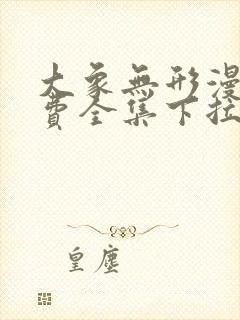 大象無形漫
費全集下拉
皇塵